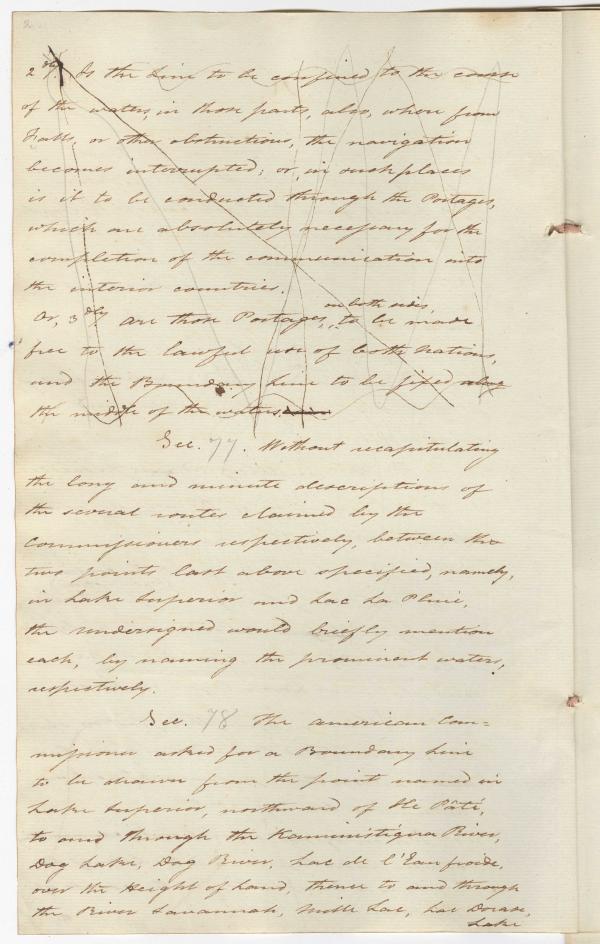 2
2dly. Is the Line to be confined to the course
of the waters, in those parts, also, where from
Falls, or other obstructions, the navigation
becomes interrupted; or, in such places
is it to be conducted through the Portages,
which are absolutely necessary for the
completion of the communication into
the interior countries.
on both sides,
Or, 3dly, are those Portages, to be made
free to the lawful use of both Nations,
and the Boundary Line to be fixed along
the middle of the waters.
Sec. 77. Without recapitulating
the long and minute descriptions of
the several routes claimed by the
Commissioners respectively, between the
two points last above specified, namely,
in Lake Superior and Lac La Pluie,
the undersigned would briefly mention
each, by naming the prominent waters,
respectively.
Sec. 78 The american Com=
missioner asked for a Boundary Line
to be drawn from the point named in
Lake Superior, northward of Ile Pâté,
to and through the Kaministiguia River,
Dog Lake, Dog River, Lac de l'Eau froide,
over the Height of Land, thence to and through
the River Savannah, Mille Lac, Lac Dorade,
Lake